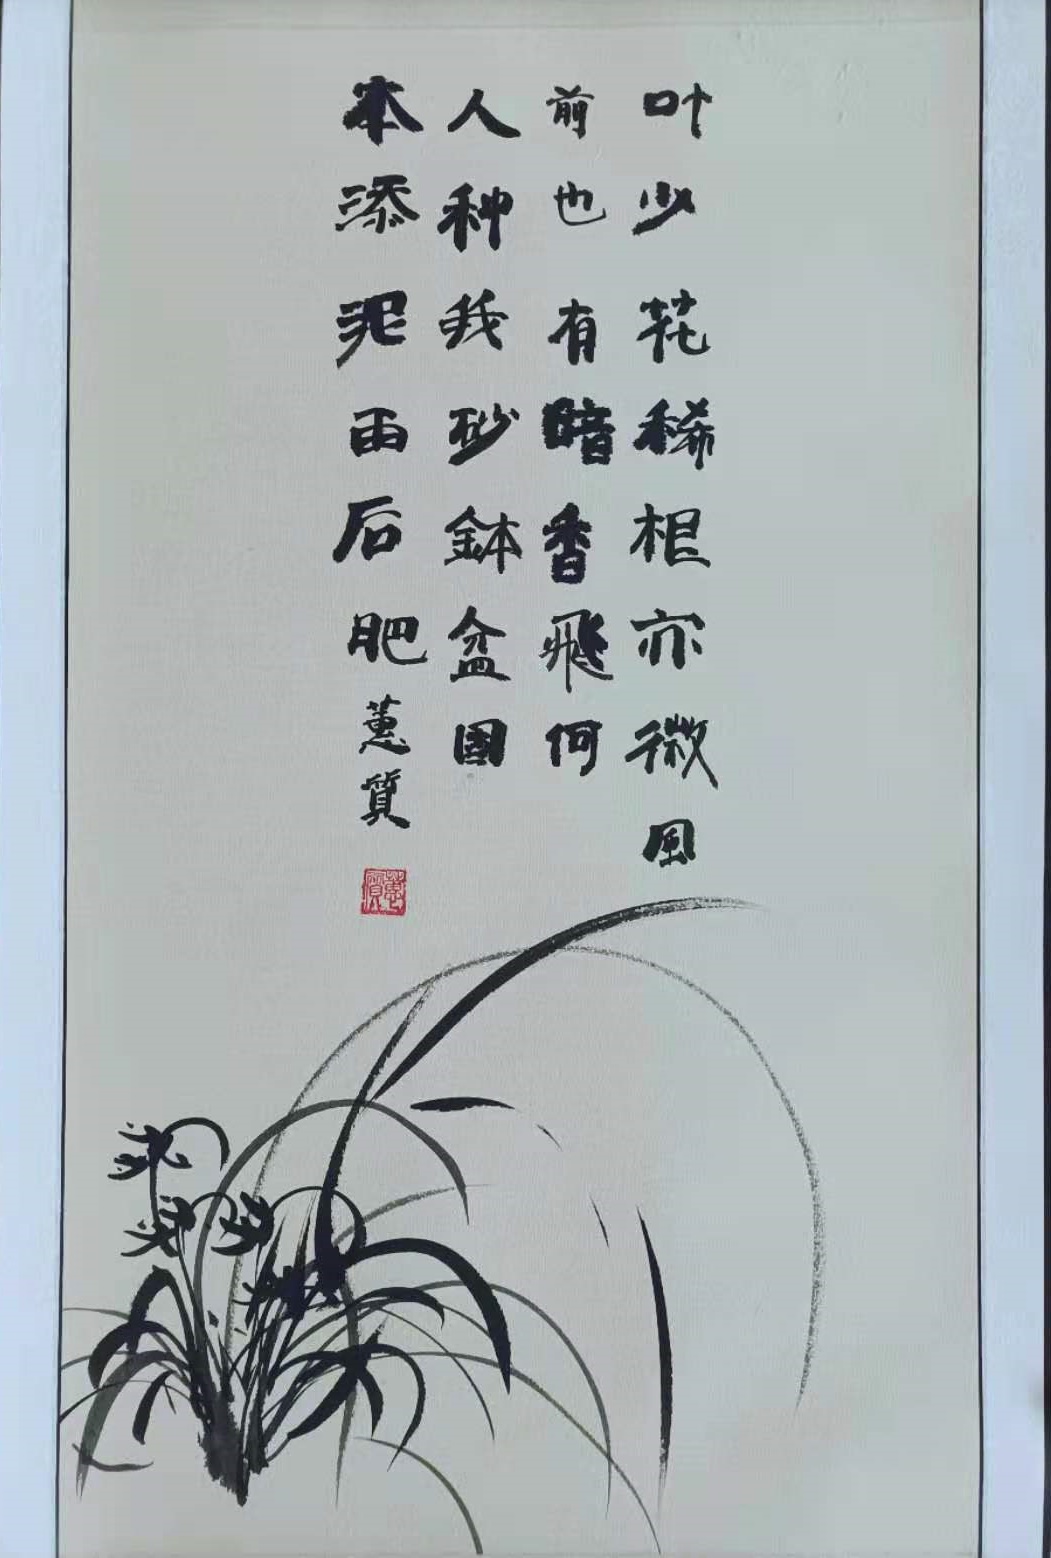 叶少花稀根亦微風
前也有暗香飛何
人种我砂鉢盆固
本添泥雨后肥蕙質
蕙質